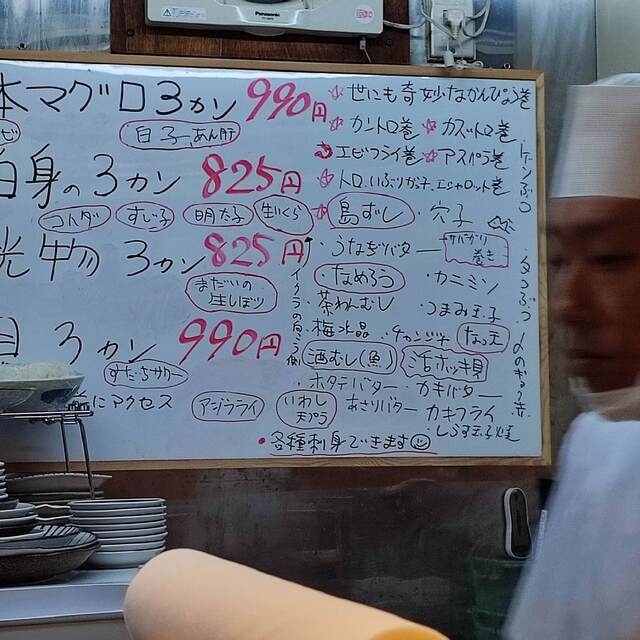 Panasonic
本マグロ3カン 990円
白子、あん肝
白身の3カン 825円
すじ子 明太子 生いくら
光物 3カン 825円
まだいの
生しぼり
3カン 990円
すだちサワー
にアクセス
アジフライ
いわし
天プラ
☆世にも奇妙なかんぴょう巻
☆カントロ巻 ☆カズトロ巻
エビフライ巻 ☆アスパラ巻
☆トロ、いぶりがっ子、エシャロット巻
☆島ずし ・穴子
・うなぎバター
巻き
・なめろう ・カニミソ
・茶わんむし ・つまみ玉子
・梅水晶 ・チャンジャ
酒むし(魚) 活ホッキ刺
・ホタテバター ・カキバター
・あさりバター カキフライ
・しらす玉子焼
・各種刺身できます